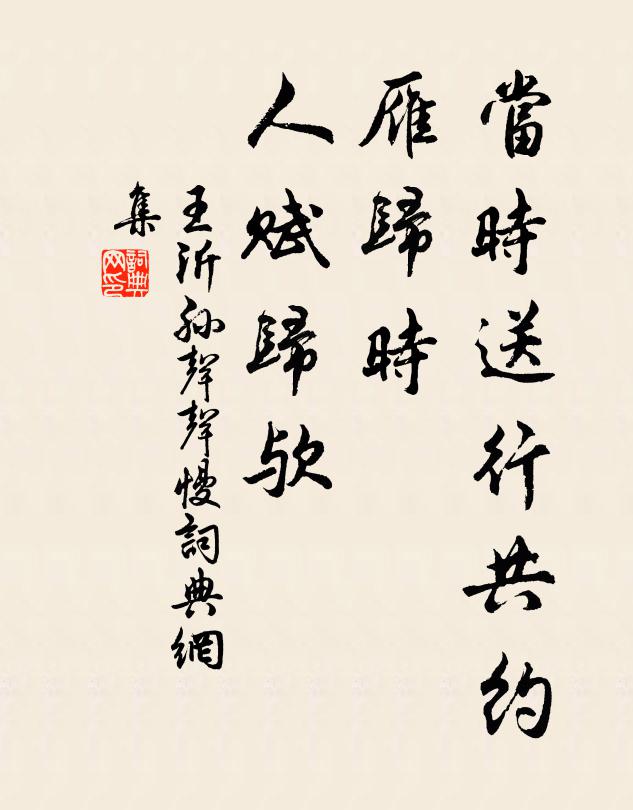 當時送行共約
雁歸時
人賦歸欤
王沂孙聲聲慢詞典網
集
詞典
网印